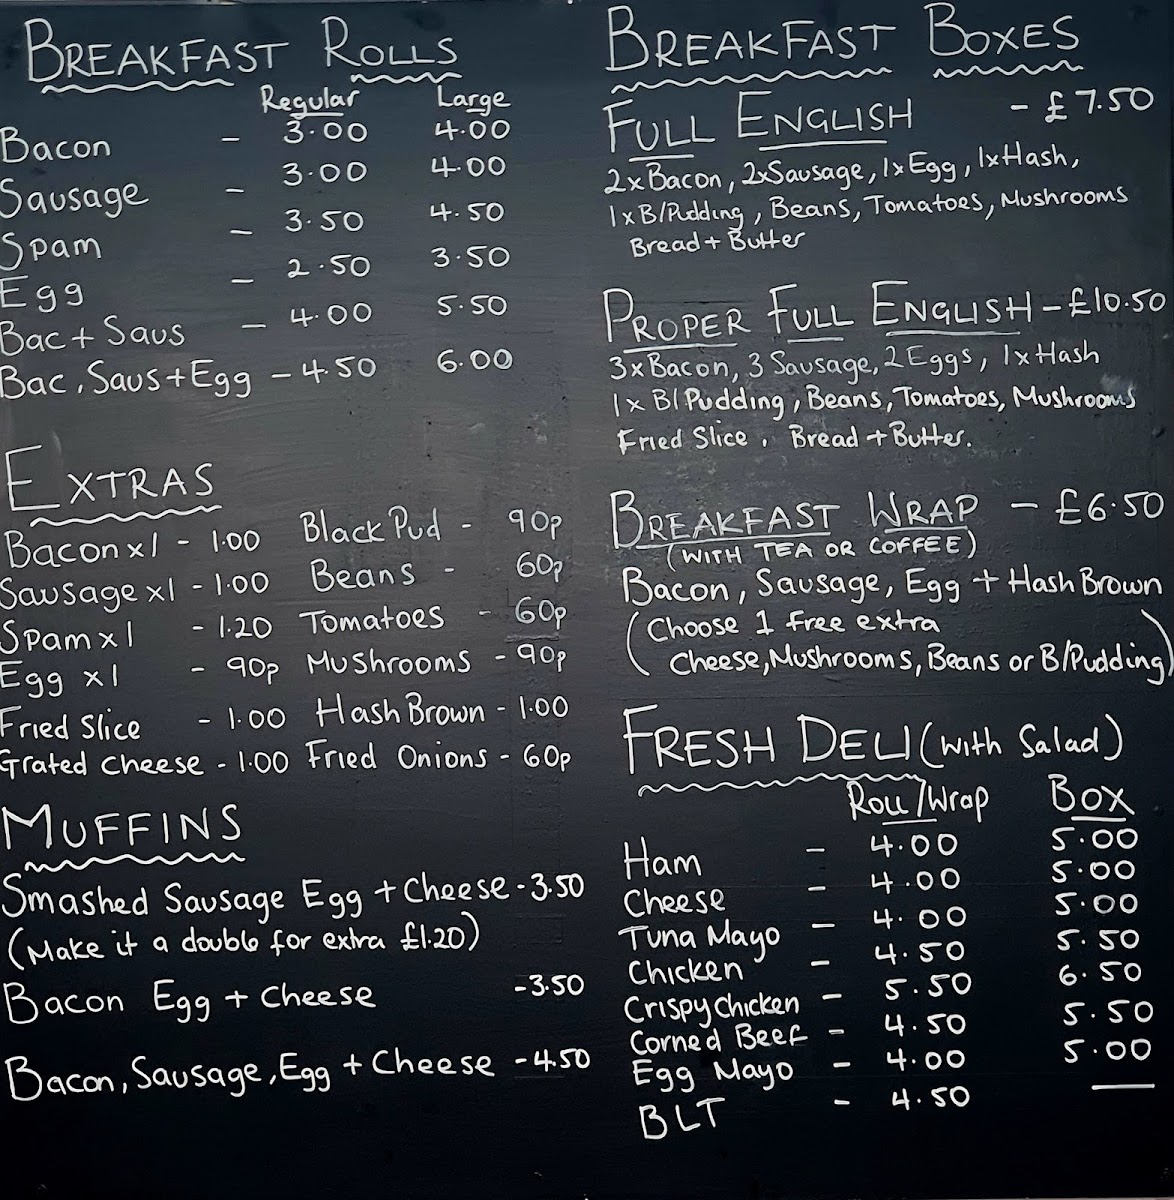 BREAKFAST ROLLS
Regular Large
Bacon - 3.00 4.00
Sausage - 3.00 4.00
Spam - 3.50 4.50
Egg - 2.50 3.50
Bac + Saus - 4.00 5.50
Bac, Saus + Egg - 4.50 6.00
EXTRAS
Bacon x1 - 1.00 Black Pud - 90p
Sausage x1 - 1.00 Beans - 60p
Spam x1 - 1.20 Tomatoes - 60p
Egg x1 - 90p Mushrooms - 90p
Fried Slice - 1.00 Hash Brown - 1.00
Grated Cheese - 1.00 Fried Onions - 60p
MUFFINS
Smashed Sausage Egg + Cheese - 3.50
(Make it a double for extra £1.20)
Bacon Egg + Cheese - 3.50
Bacon, Sausage, Egg + Cheese - 4.50
BREAKFAST BOXES
FULL ENGLISH - £7.50
2xBacon, 2xSausage, 1xEgg, 1xHash,
1xB/Pudding, Beans, Tomatoes, Mushrooms
Bread + Butter
PROPER FULL ENGLISH - £10.50
3xBacon, 3 Sausage, 2 Eggs, 1xHash
1x B/Pudding, Beans, Tomatoes, Mushrooms
Fried Slice, Bread + Butter.
BREAKFAST WRAP - £6.50
(WITH TEA OR COFFEE)
Bacon, Sausage, Egg + Hash Brown
(Choose 1 free extra
Cheese, Mushrooms, Beans or B/Pudding)
FRESH DELI (with Salad)
ROLL/Wrap BOX
Ham - 4.00 5.00
Cheese - 4.00 5.00
Tuna Mayo - 4.00 5.00
Chicken - 4.50 5.50
Crispy Chicken - 5.50 6.50
Corned Beef - 4.50 5.50
Egg Mayo - 4.00 5.00
BLT - 4.50 —